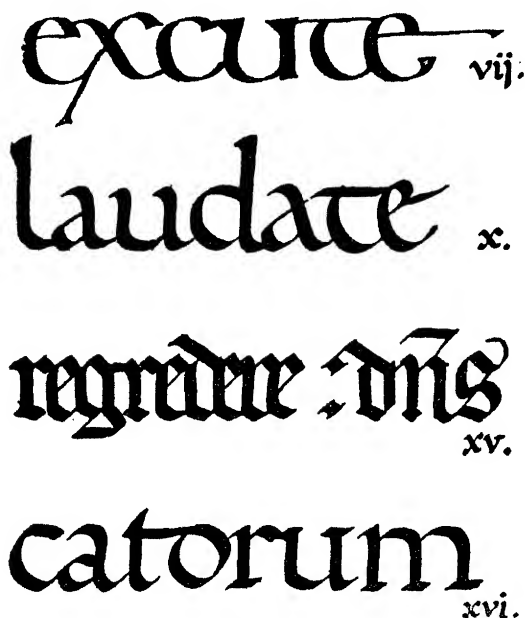 excute vij.
laudate x.
regredere : dn̄s xv.
catorum xvi.